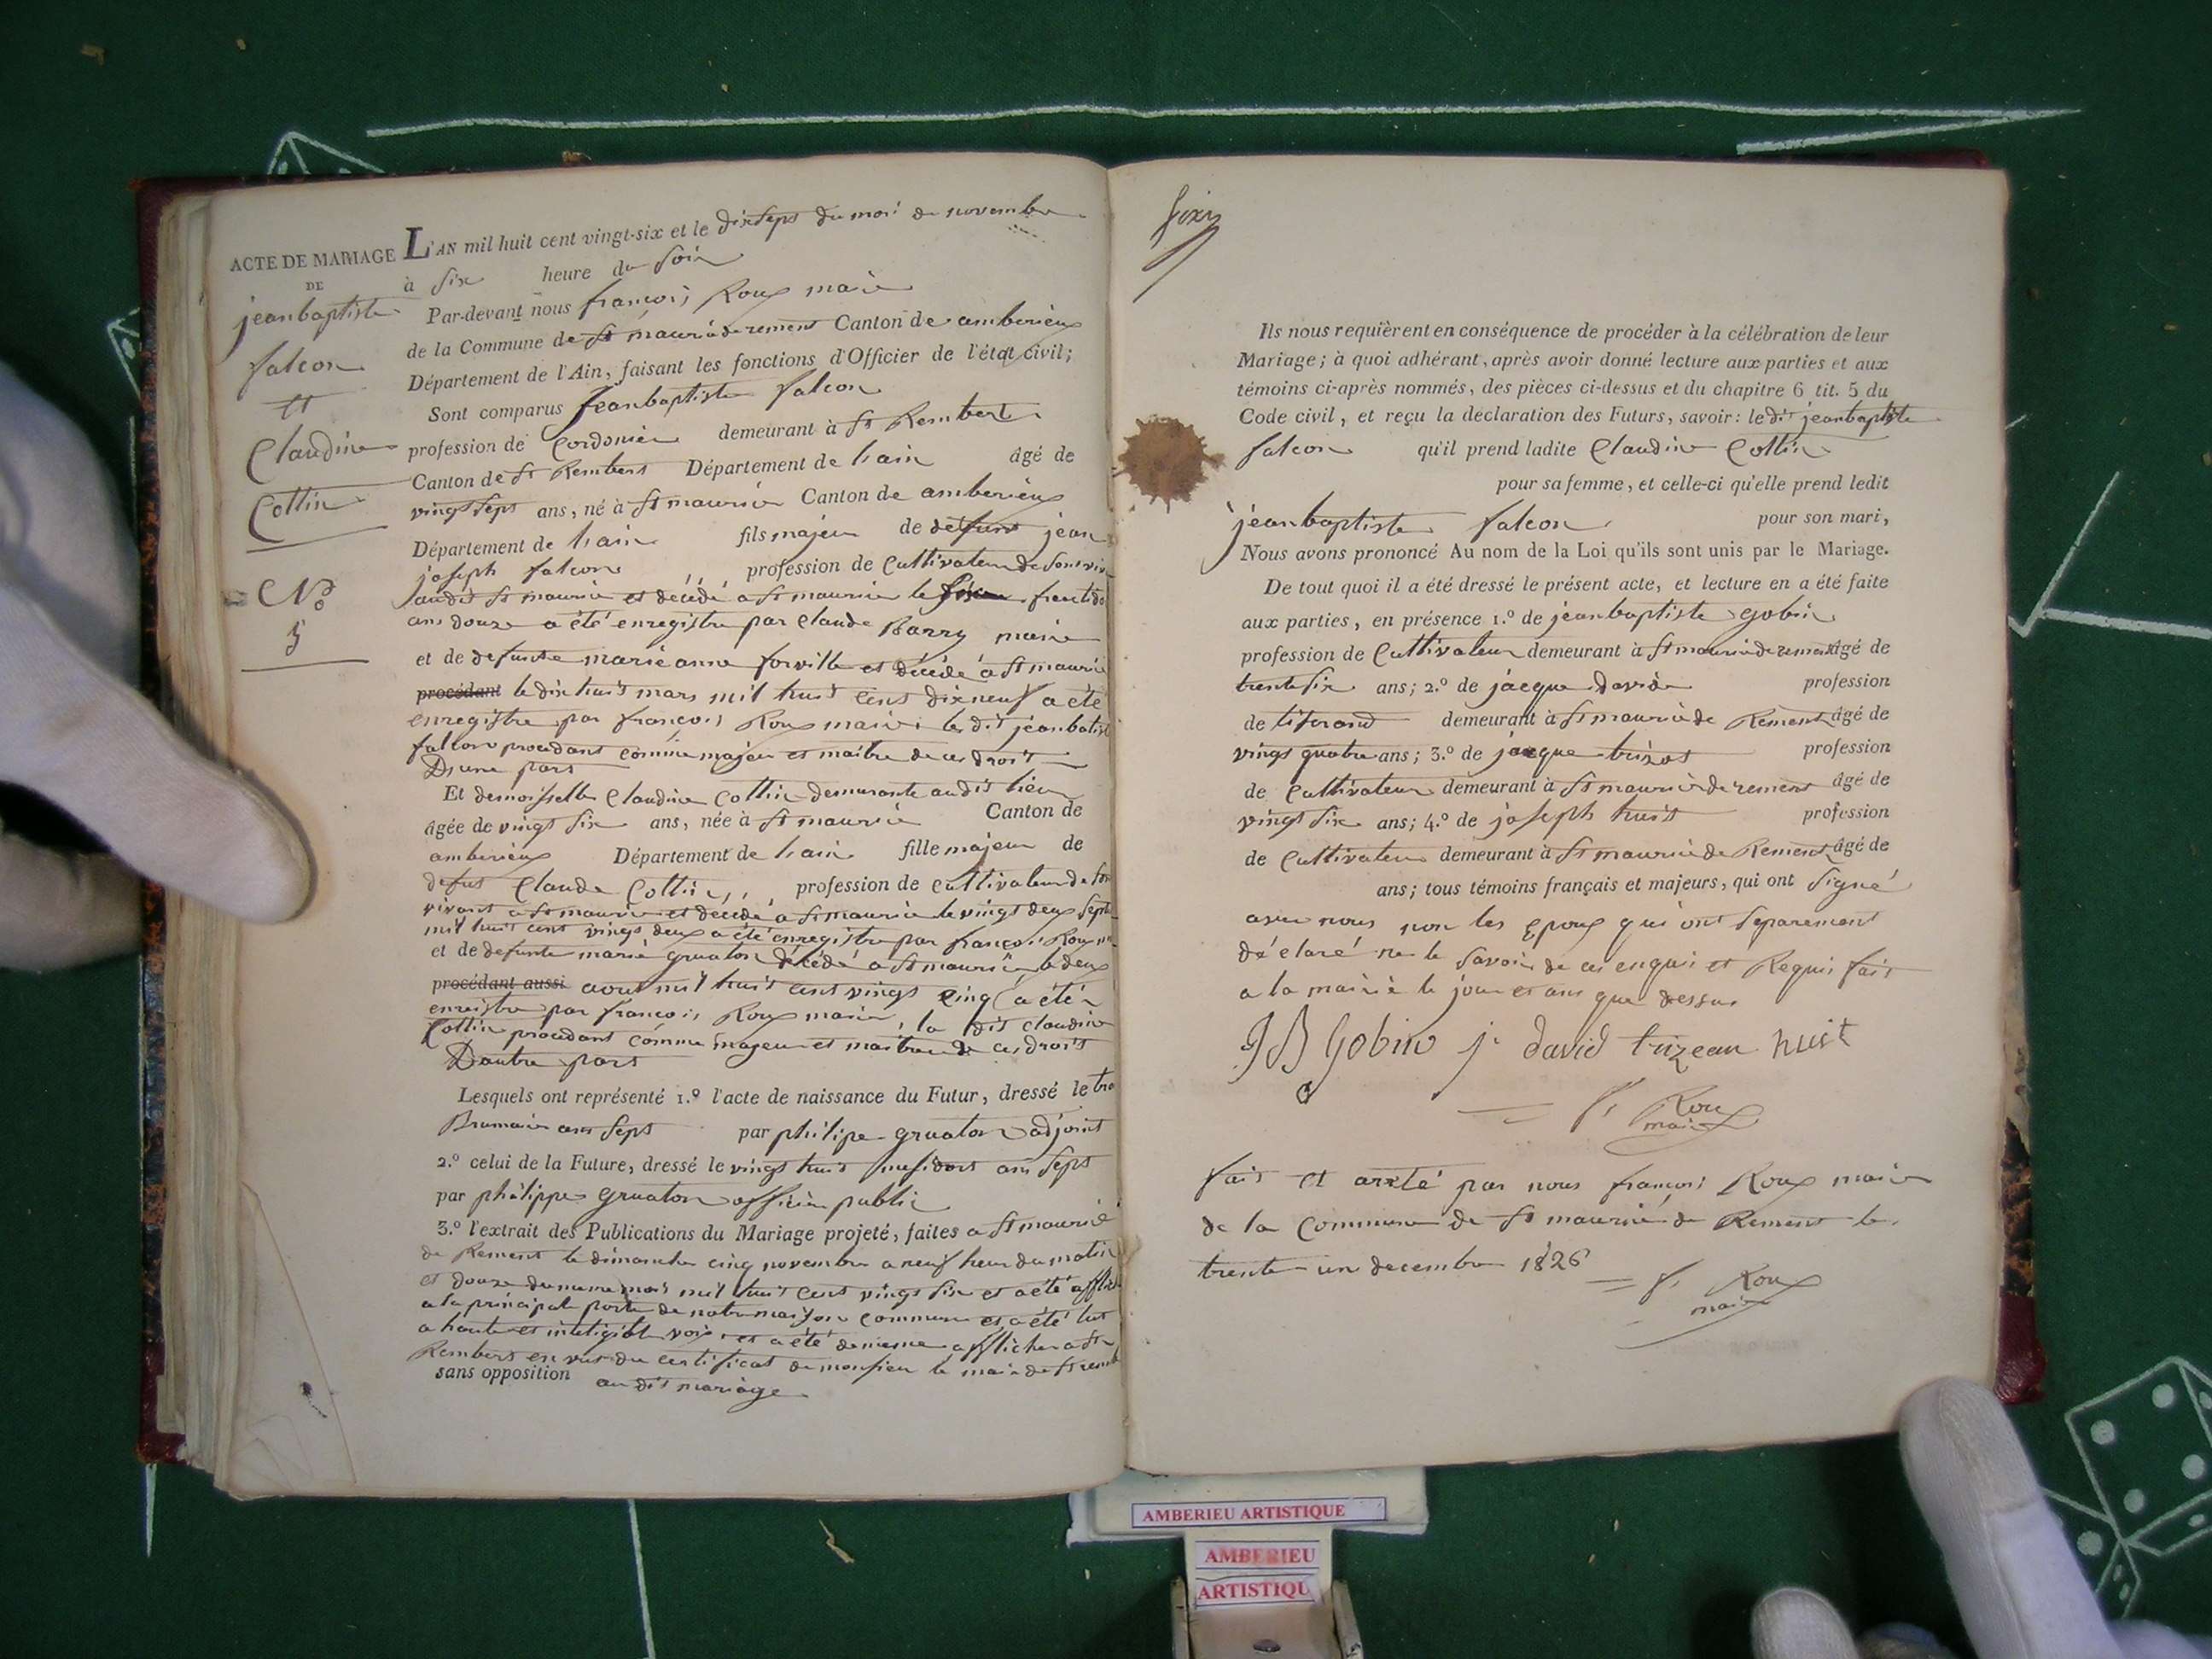 ACTE DE MARIAGE
DE
jeanbaptiste
falcon
et
Claudine
Collin
No
5
L'AN mil huit cent vingt-six et le dix sept du moi de novembre
à six heure du soir
Par-devant nous françois Roux maire
de la Commune de St mauricederement Canton de amberieux
Département de l'Ain, faisant les fonctions d'Officier de l'état civil;
Sont comparus Jeanbaptiste falcon
profession de Cordonier demeurant à St Rembert
Canton de St Rembert Département de lain âgé de
vingt sept ans, né à St maurice Canton de amberieux
Département de lain fils majeur de defunt jean
joseph falcon profession de Cultivateur de son viv
audit St maurice et décédé a St maurice le
ans douze a été enregistre par Claude Barry maire
et de defunte marieanne forville et décédé a St maurice
procédant le dix huit mars mil huit cent dixneuf a été
enregistre par françois Roux maire le dit jeanbatist
falcon procedant comme majeur et maitre de ces droit
D'une part
Et demoisselle Claudine Collin demeurante audit lieu
âgée de vingt six ans, née à St maurice Canton de
amberieux Département de lain fille majeur de
defut Claude Collin, profession de cultivateur de son
vivant a St maurice et decedé a St maurice le vingt deux Sept
mil huit cent vingt deux a été enregistre par françois Roux
et de defunte marie gruaton décédé a St maurice le deux
procédant aussi aout mil huit cent vingt cinq a été
enreistre par francois Roux maire, la dit claudine
Collin procedant comme majeur et maitre de ces droits
D'autre part
Lesquels ont représenté 1.º l'acte de naissance du Futur, dressé le
Brumaire an sept par philipe gruaton adjoint
2.º celui de la Future, dressé le vingt huit messidort an sept
par philippe gruaton officier public
3.º l'extrait des Publications du Mariage projeté, faites a St maurice
de Rement le dimanche cinq novembre a neuf heur du matin
et douze du meme mois mil huit cent vingt six et a été affiché
a la principale porte de notre maison commune et a été lut
a haute et inteligible voix et a été de meme afflicher a St
Rembert en vut du certificat de monsieur le maire de St remb
sans opposition au dit mariage
Ils nous requièrent en conséquence de procéder à la célébration de leur
Mariage; à quoi adhérant, après avoir donné lecture aux parties et aux
témoins ci-après nommés, des pièces ci-dessus et du chapitre 6 tit. 5 du
Code civil, et reçu la déclaration des Futurs, savoir: ledit jeanbaptiste
falcon qu'il prend ladite Claudine Collin
pour sa femme, et celle-ci qu'elle prend ledit
jeanbaptiste falcon pour son mari,
Nous avons prononcé Au nom de la Loi qu'ils sont unis par le Mariage.
De tout quoi il a été dressé le présent acte, et lecture en a été faite
aux parties, en présence 1.º de jeanbaptiste gobin
profession de Cultivateur demeurant à St mauricederement âgé de
trente six ans; 2.º de jacque david profession
de tiserand demeurant à St maurice de Rement âgé de
vingt quatre ans; 3.º de jacque trizot profession
de Cultivateur demeurant à St maurice de rement âgé de
vingt six ans; 4.º de joseph huit profession
de Cultivateur demeurant à St maurice de Rement âgé de
ans; tous témoins français et majeurs, qui ont signé
avec nous non les epoux qui ont separement
déclaré ne le savoir de ce enquis et Requis fait
a la mairie le jour et ans que dessus
JB Gobin j. david trizeau huit
f. Roux
maire
fait et arreté par nous francois Roux maire
de la Commune de St maurice de Rement le
trente-un decembre 1826
f. Roux
maire
AMBERIEU ARTISTIQUE
AMBERIEU
ARTISTIQU